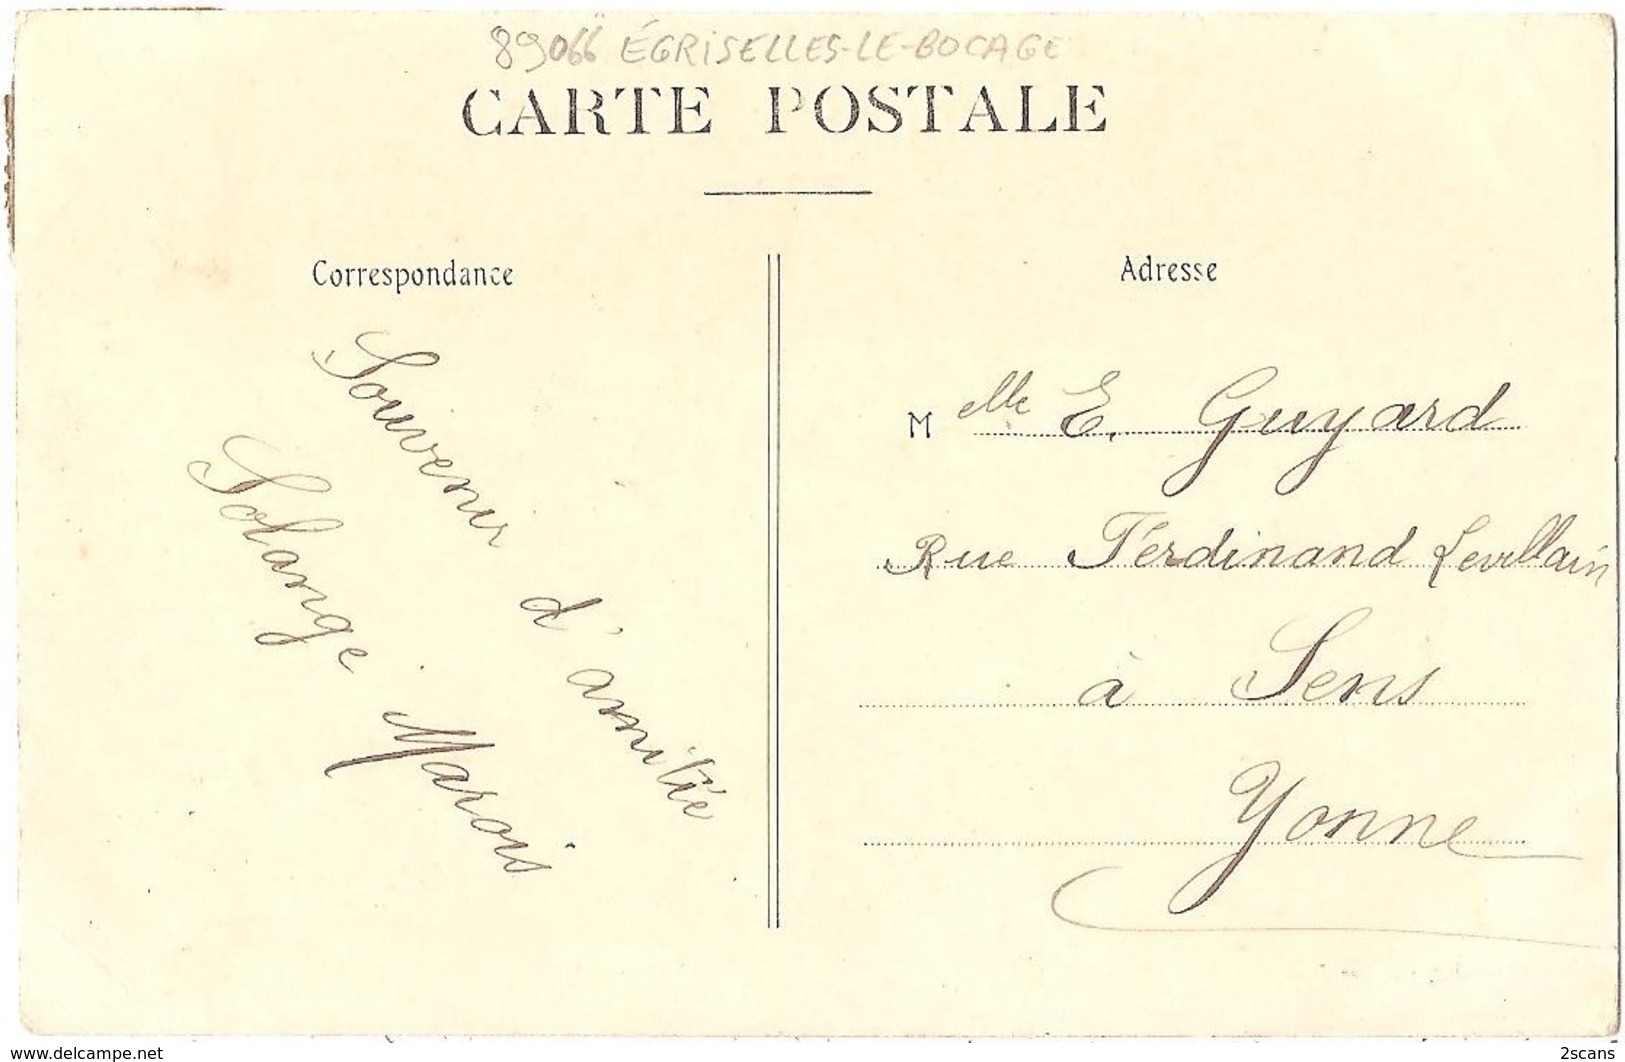 89066 ÉGRISELLES-LE-BOCAGE
CARTE POSTALE
Correspondance
Souvenir d'amitié
Solange Marois
Adresse
Melle E. Guyard
Rue Ferdinand Levillain
à Sens
Yonne
www.delcampe.net
2scans